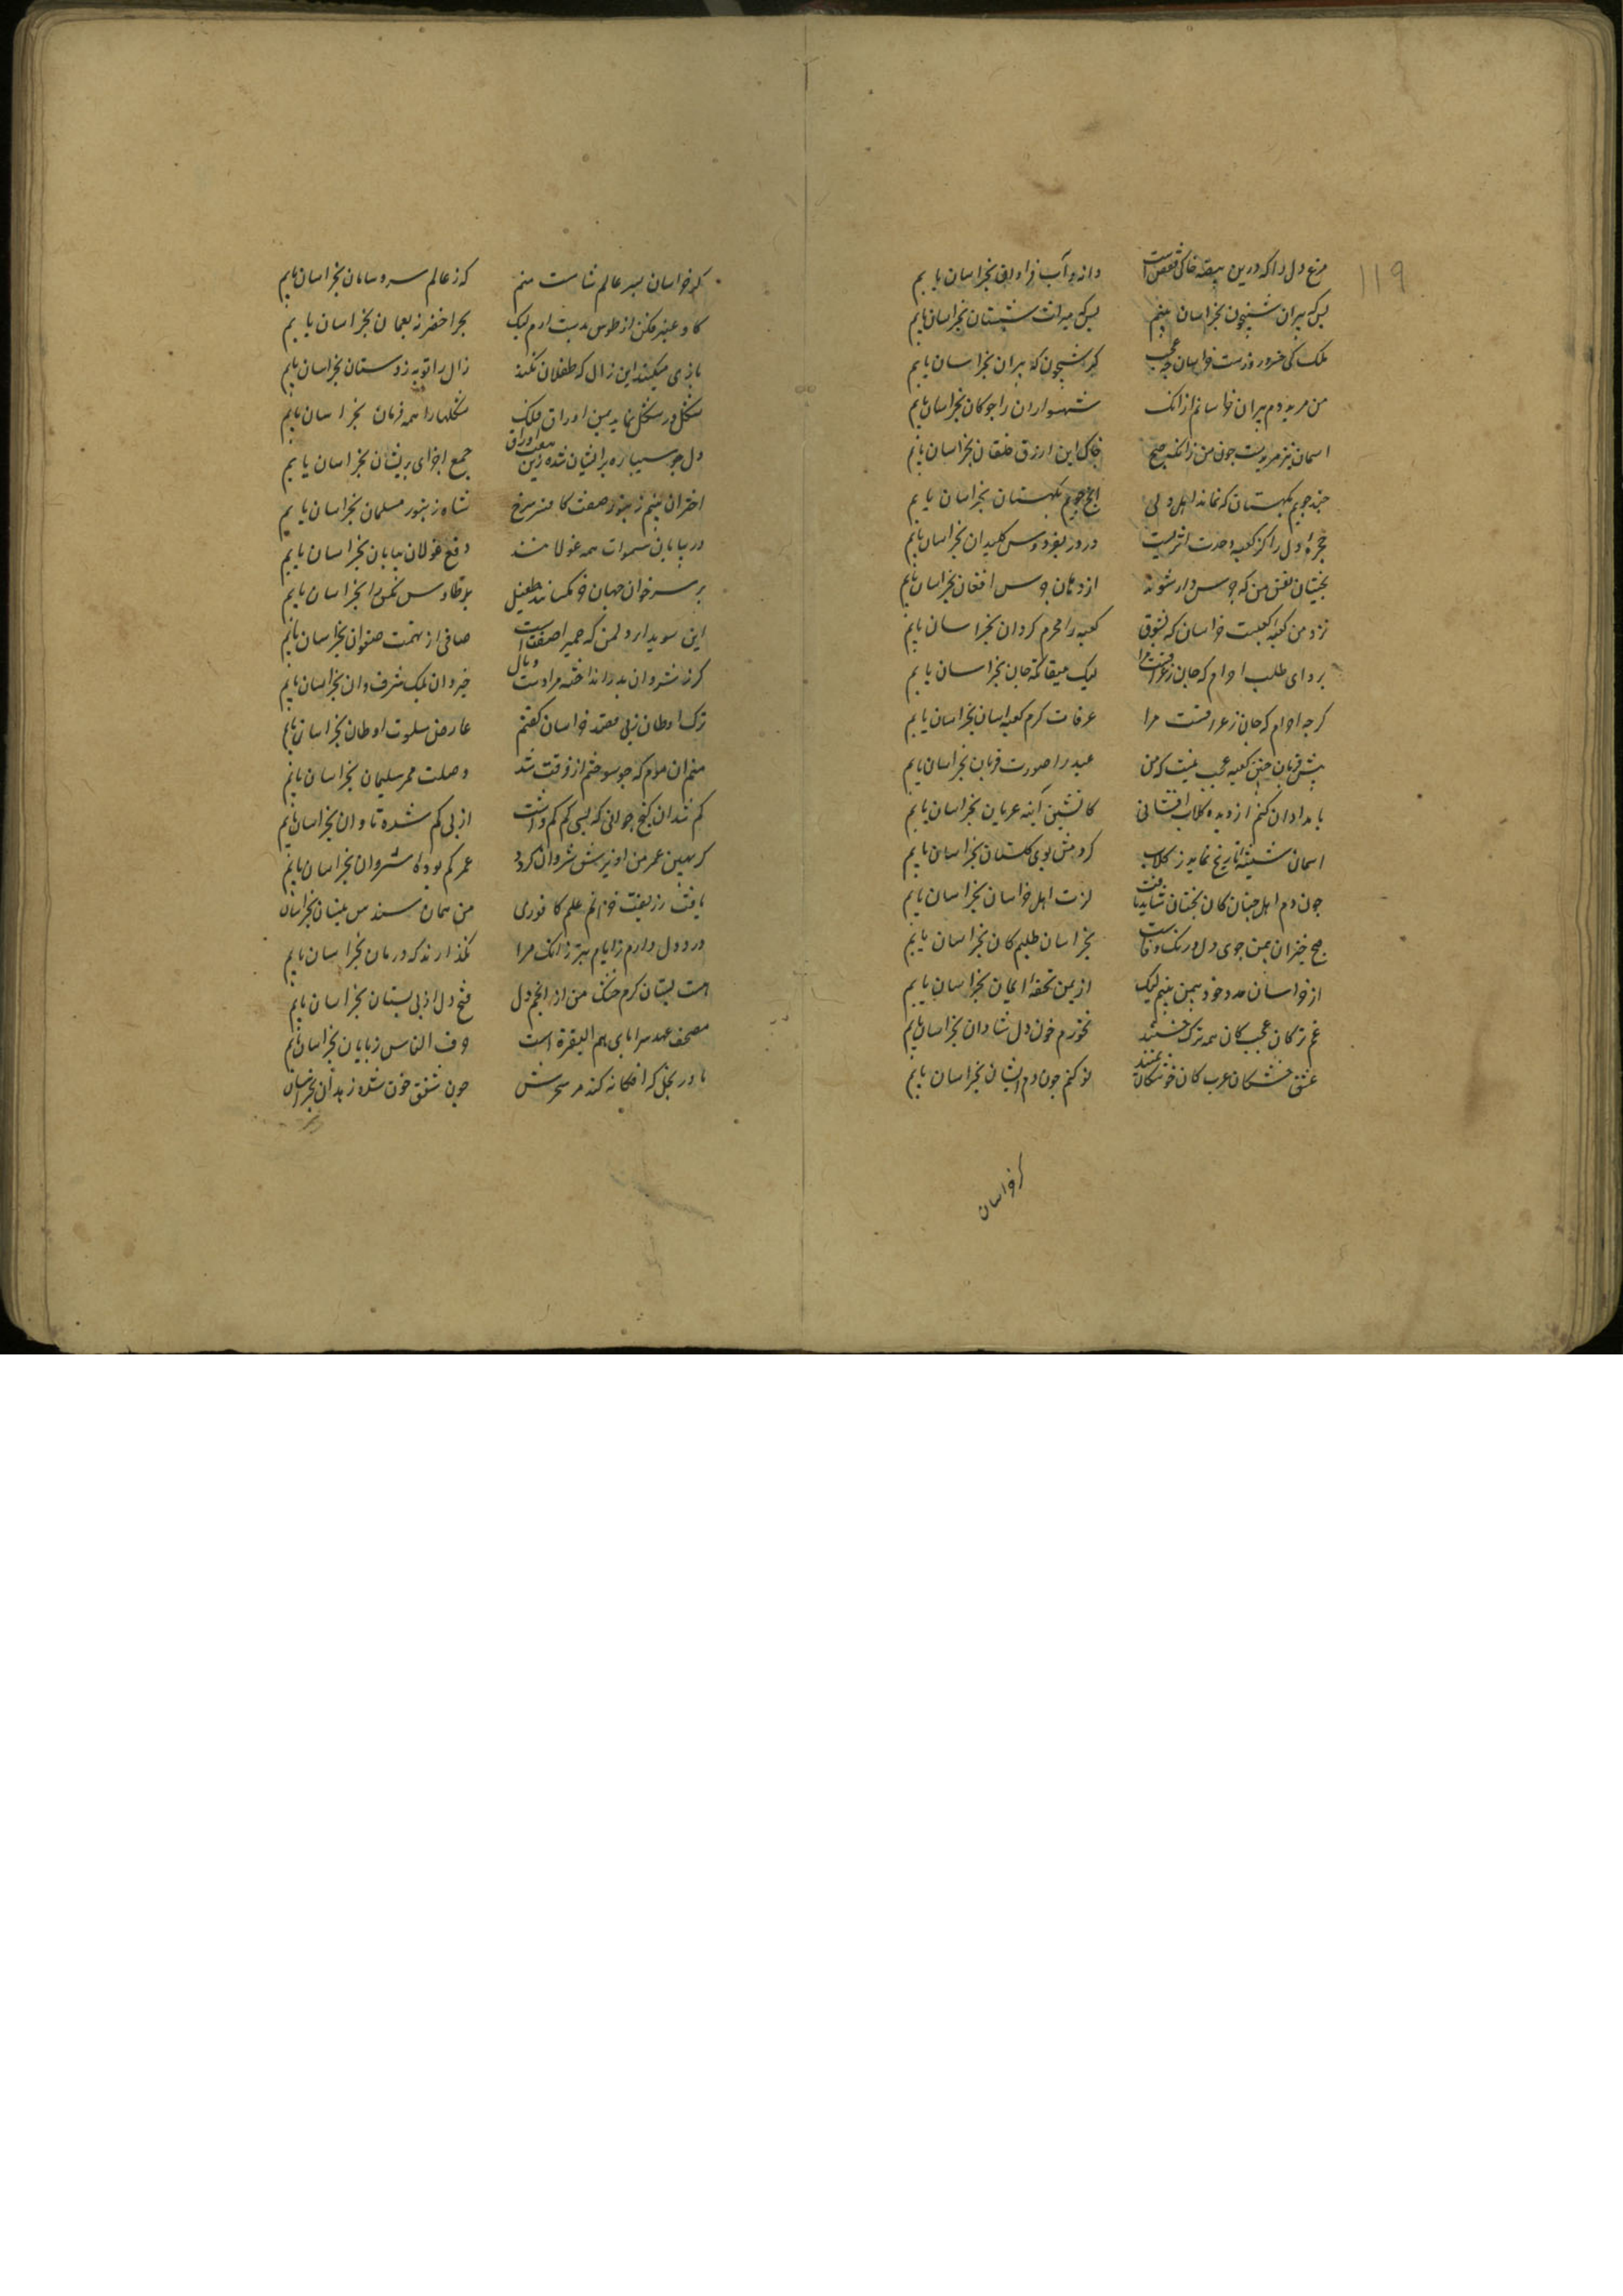 ۱۱۹
مرغ دل را که درین بیضهٔ خاکی قفص است دانه و آب فراوان بخراسان یابم
بس که پیران شبیخون بخراسان بینم بس که میدان شبستان بخراسان یابم
ملک کی خسرو روزست خراسان چه عجب کر شبیخون که پیران بخراسان یابم
من مرید دم پیران خراسانم ازانک شهسواران را جوکان بخراسان یابم
اسمان نیز مریدیست جون من زانکه صبح جاک این ازرق خلقان بخراسان یابم
جند جویم بکهستان که نماند اهل دلی انج جویم بکهستان بخراسان یابم
حجرهٔ دل را کز کعبه وحدت اثریست در و در بفردوس کلیدان بخراسان یابم
بختیان نفس من که جرس دار شوند از دهان جرس افغان بخراسان یابم
نزد من کعبه کعبست خراسان که بشوق کعبه را محرم کردان بخراسان یابم
بردای طلب احرام که جان زعرا رفت مرا لیک میقاتکه جان بخراسان یابم
کرجه احرام که جان زعرا قست مرا عرفات کرم کعبه اسان بخراسان یابم
پیش قربان جنین کعبه عجب نیست که من عید را صورت قربان بخراسان یابم
بامدادان کنم از دیده کلاب افشانی کاتشین آینه عریان بخراسان یابم
اسمان شیشهٔ نارنج نماید ز کلاب کردمش بوی کلستان بخراسان یابم
جون دم اهل جنان کان بجنان شاید یافت لذت اهل خراسان بخراسان یابم
صبح خیزان بمن جوی دل و رنک وفاست بخراسان طلبم کان بخراسان یابم
از خراسان مدد خود بیمن بینم لیک از یمن تحفهٔ ایمان بخراسان یابم
غم ترکان عجب کان همه ترک خشند نخورم خون دل شادان بخراسان یابم
عشق خشکان عرب کان خوشکان یمنند نو کنم جون دم ایشان بخراسان یابم
کر خراسان
کر خراسان پسر عالم شاست منم که ز عالم سر و سامان بخراسان یابم
کاو عنبر فکن از طوس بدست ارم لیک بحر اخضر نه بعمان بخراسان یابم
بازی میکند این زال که طفلان نکنند زال را توبه ز دستان بخراسان یابم
شکل در شکل نماید بمن اوراق فلک شکلها را همه فرمان بخراسان یابم
دل جو سیپاره پرایشان شده زین هفت اوراق جمع اجزای پریشان بخراسان یابم
اختران بینم زنبور صفت کافر سرخ شاه زنبور مسلمان بخراسان یابم
در بیابان سموات همه غولانند دفع غولان بیابان بخراسان یابم
بر سر خوان جهان خرمکسانند طفیل پر طاوس مکس ران بخراسان یابم
این سویدا و دل من که حمیرا صفتست صافی از تهمت صفوان بخراسان یابم
کرز شروان بدر انداخت مرا دست وبال خیروان بلک شرف وان بخراسان یابم
ترک اوطان زپی مقصد خراسان کفتم عارض سلوت اوطان بخراسان یابم
منم ان مورم که جو سوختم از فرقت شد وصلت مهر سلیمان بخراسان یابم
کم شد ان کنج جوانی که بسی کم کم داشت از پی کم شده تاوان بخراسان یابم
کر بهین عمر من اویزش شروان کردم عمر کم بوده شروان بخراسان یابم
یافت زربفت خزانم علم کافوری من همان سندس نیسان بخراسان
درد دل دارم ز ایام بتر زانک مرا نکذارند که درمان بخراسان یابم
هست پستان کرم خشک من از انجم دل فتح دل از پی پستان بخراسان یابم
مصحف عهد سراپای هم البقرة است حرف الناس ز پایان بخراسان یابم
مادر بخل که افکانه کند هر سحرش جون شفق خون شده زهدان بخراسان